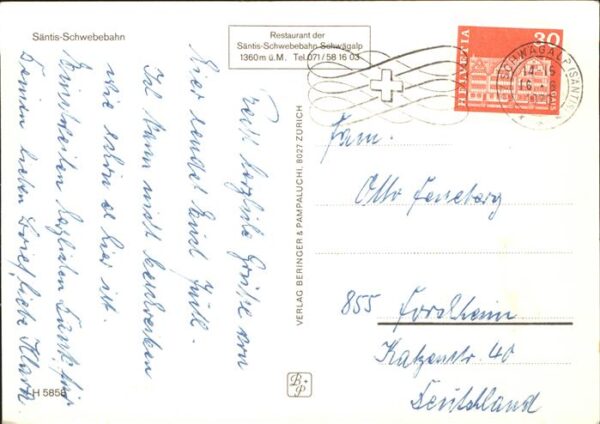 Säntis-Schwebebahn
Restaurant der
Säntis-Schwebebahn Schwägalp
1360m ü.M. Tel.071/58 16 03
HELVETIA
30
SCHWÄGALP (SÄNTIS)
14-15
Recht herzliche Grüße von
hier sendet Euch
Ich kann nicht beschreiben
wie schön es hier ist.
Einstweilen herzlichen Dank für
Deinen lieben Brief, liebe
VERLAG BERINGER & PAMPALUCHI, 8027 ZÜRICH
Fam.
Otto
855 Forchheim
Katzenstr. 40
Deutschland
B+P
H 5856